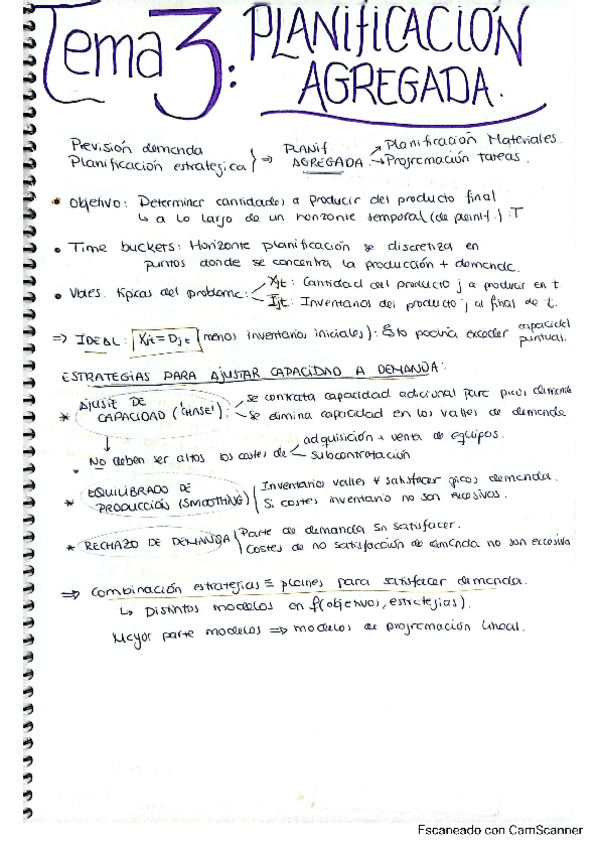 Tema 3: PLANIFICACIÓN
AGREGADA.
Previsión demanda
Planificación estrategica } ⇒ PLANIF AGREGADA → Planificación Materiales.
→ Programación tareas.
• Objetivo: Determinar cantidades a producir del producto final
↳ a lo largo de un horizonte temporal (de planif.): T
• Time buckets: Horizonte planificación se discretiza en
puntos donde se concentra la producción + demanda.
• Vbles. típicas del problema: Xjt: Cantidad del producto j a producir en t.
Ijt: Inventarios del producto j al final de t.
⇒ IDEAL: Xjt = Djt (menos inventarios iniciales): Esto podría exceder capacidad
puntual.
ESTRATEGIAS PARA AJUSTAR CAPACIDAD A DEMANDA:
* AJUSTE DE CAPACIDAD ('CHASE'): se contrata capacidad adicional para picos demanda
se elimina capacidad en los valles de demanda
↓
NO deben ser altos los costes de adquisición + venta de equipos.
subcontratación
* EQUILIBRADO DE PRODUCCIÓN (SMOOTHING) Inventario valles + satisfacer picos demanda.
Si costes inventario no son excesivos.
* RECHAZO DE DEMANDA Parte de demanda sin satisfacer.
Costes de no satisfacción de demanda no son excesivo
⇒ Combinación estrategias ≡ planes para satisfacer demanda.
↳ Distintos modelos en f(objetivos, estrategias).
Mayor parte modelos ⇒ modelos de programación lineal.
Escaneado con CamScanner